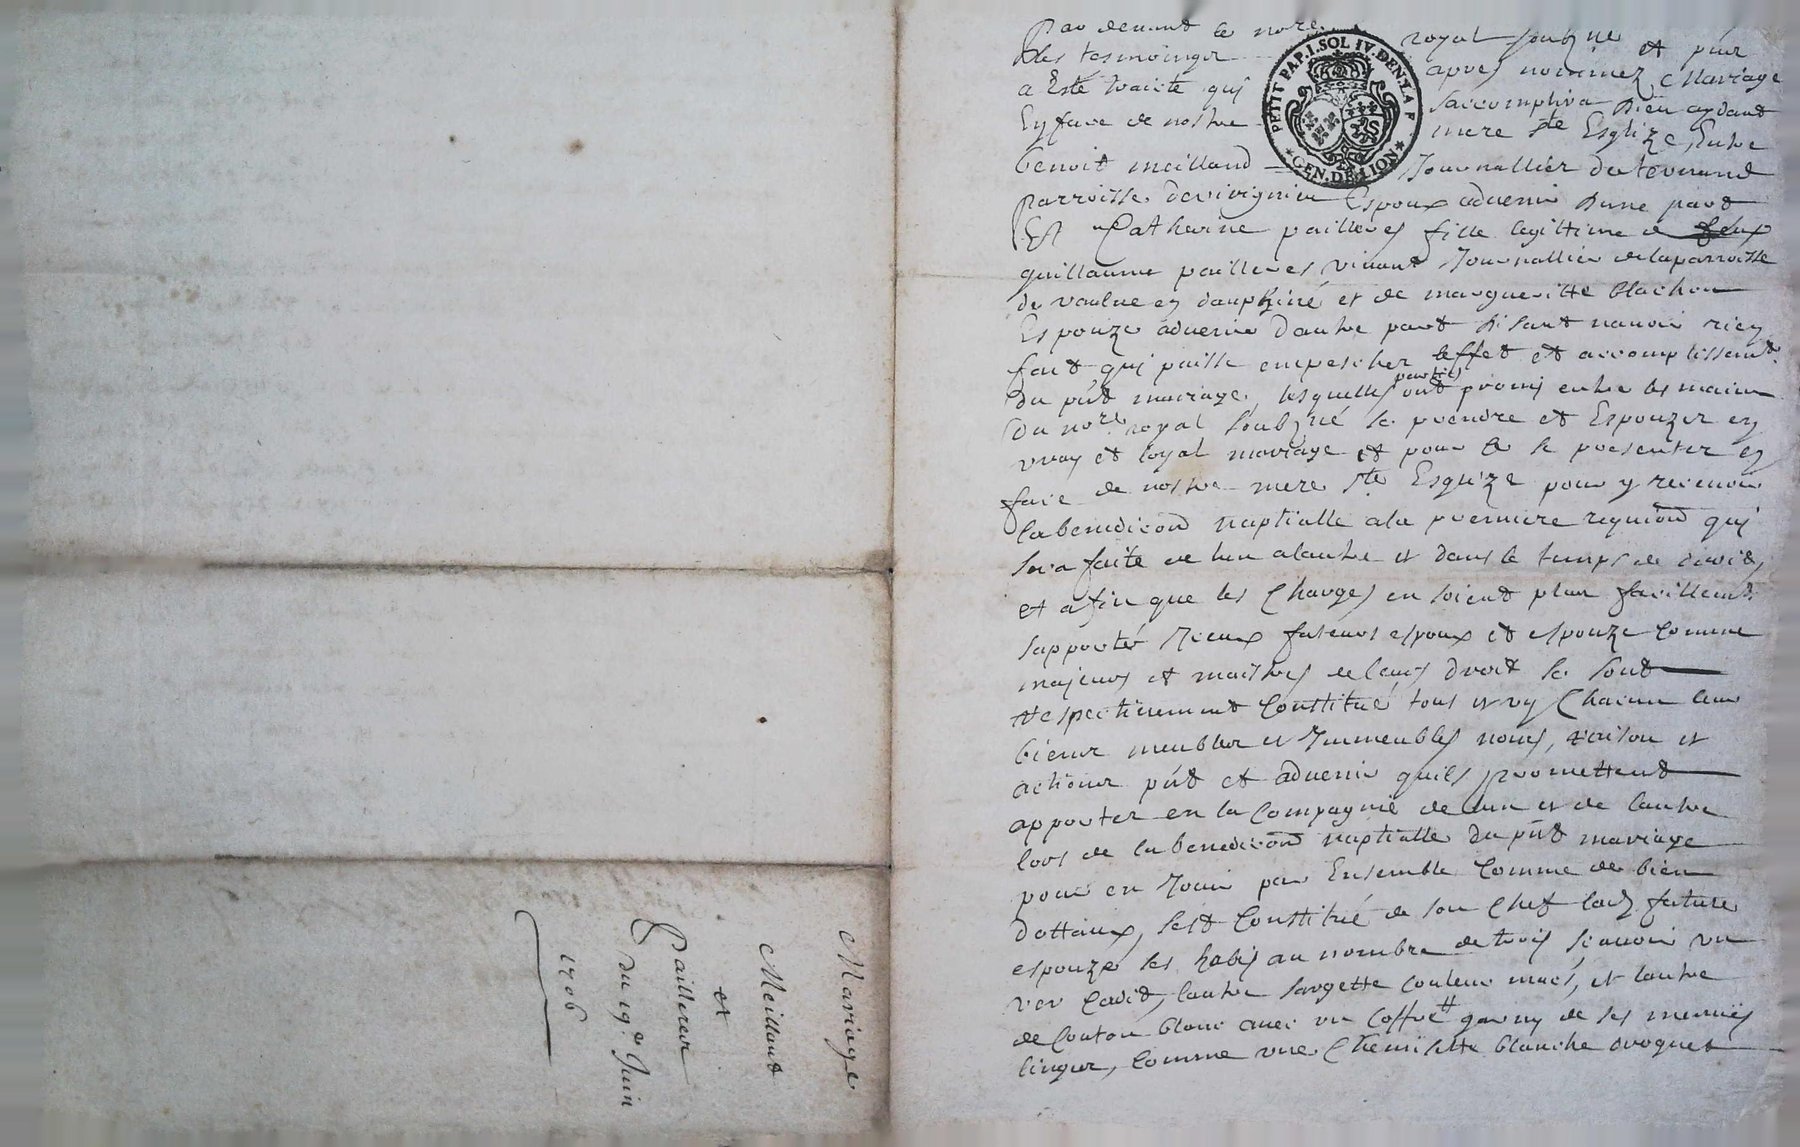 Mariage
Meilland
et
Paillerer
du 19.e Juin
1706
PETIT PAP. I. SOL IV. DEN. LA F
GEN. DE LION
Par devant le no.re royal soubz.né et
des tesmoingz apres nommez Mariage
a Esté traicté quy saccomplira Dieu aydant
En face de nostre mere S.te Esglize, Entre
benoit meilland Journallier
parroisse Espoux advenir d'une part
Et Catherine pailleres fille legittime de feux
guillaume pailleres vivant Journallier de la parroisse
de en dauphiné et de margueritte blachon
Espouze advenir d'autre part disant n'avoir rien
fait quy puisse empescher leffet et accomplissem.t
du p.nt mariage, lesquelles parties ont promis entre les mains
du no.re royal soubz.né se prendre et Espouzer en
vray et loyal mariage et pour ce se presenter en
face de nostre mere S.te Esglize pour y recevoir
la benediction nuptialle a la premiere requision quy
sera faite de lun a lautre et dans le temps de droit,
et afin que les Charges en soient plus facillem.t
supporté Iceux futeurs espoux et espouze Comme
majeurs et maistres de leurs droit se sont
Respectivement Constitué tous et un Chacun leur
biens meubles et Immeubles noms, raison et
actions p.nt et advenir quils promettent
apporter en la Compagnie de lun et de lautre
lors de la benediction nuptialle du p.nt mariage
pour en Jouir par Ensemble Comme de bien
dottaux, sest Constitué de son Chef lad. future
espouze ses habis au nombre de trois sçavoir un
lautre sargette couleur et lautre
de Couton blanc avec un Coffre garny de ses menus
linger, Comme une Chemisette blanche